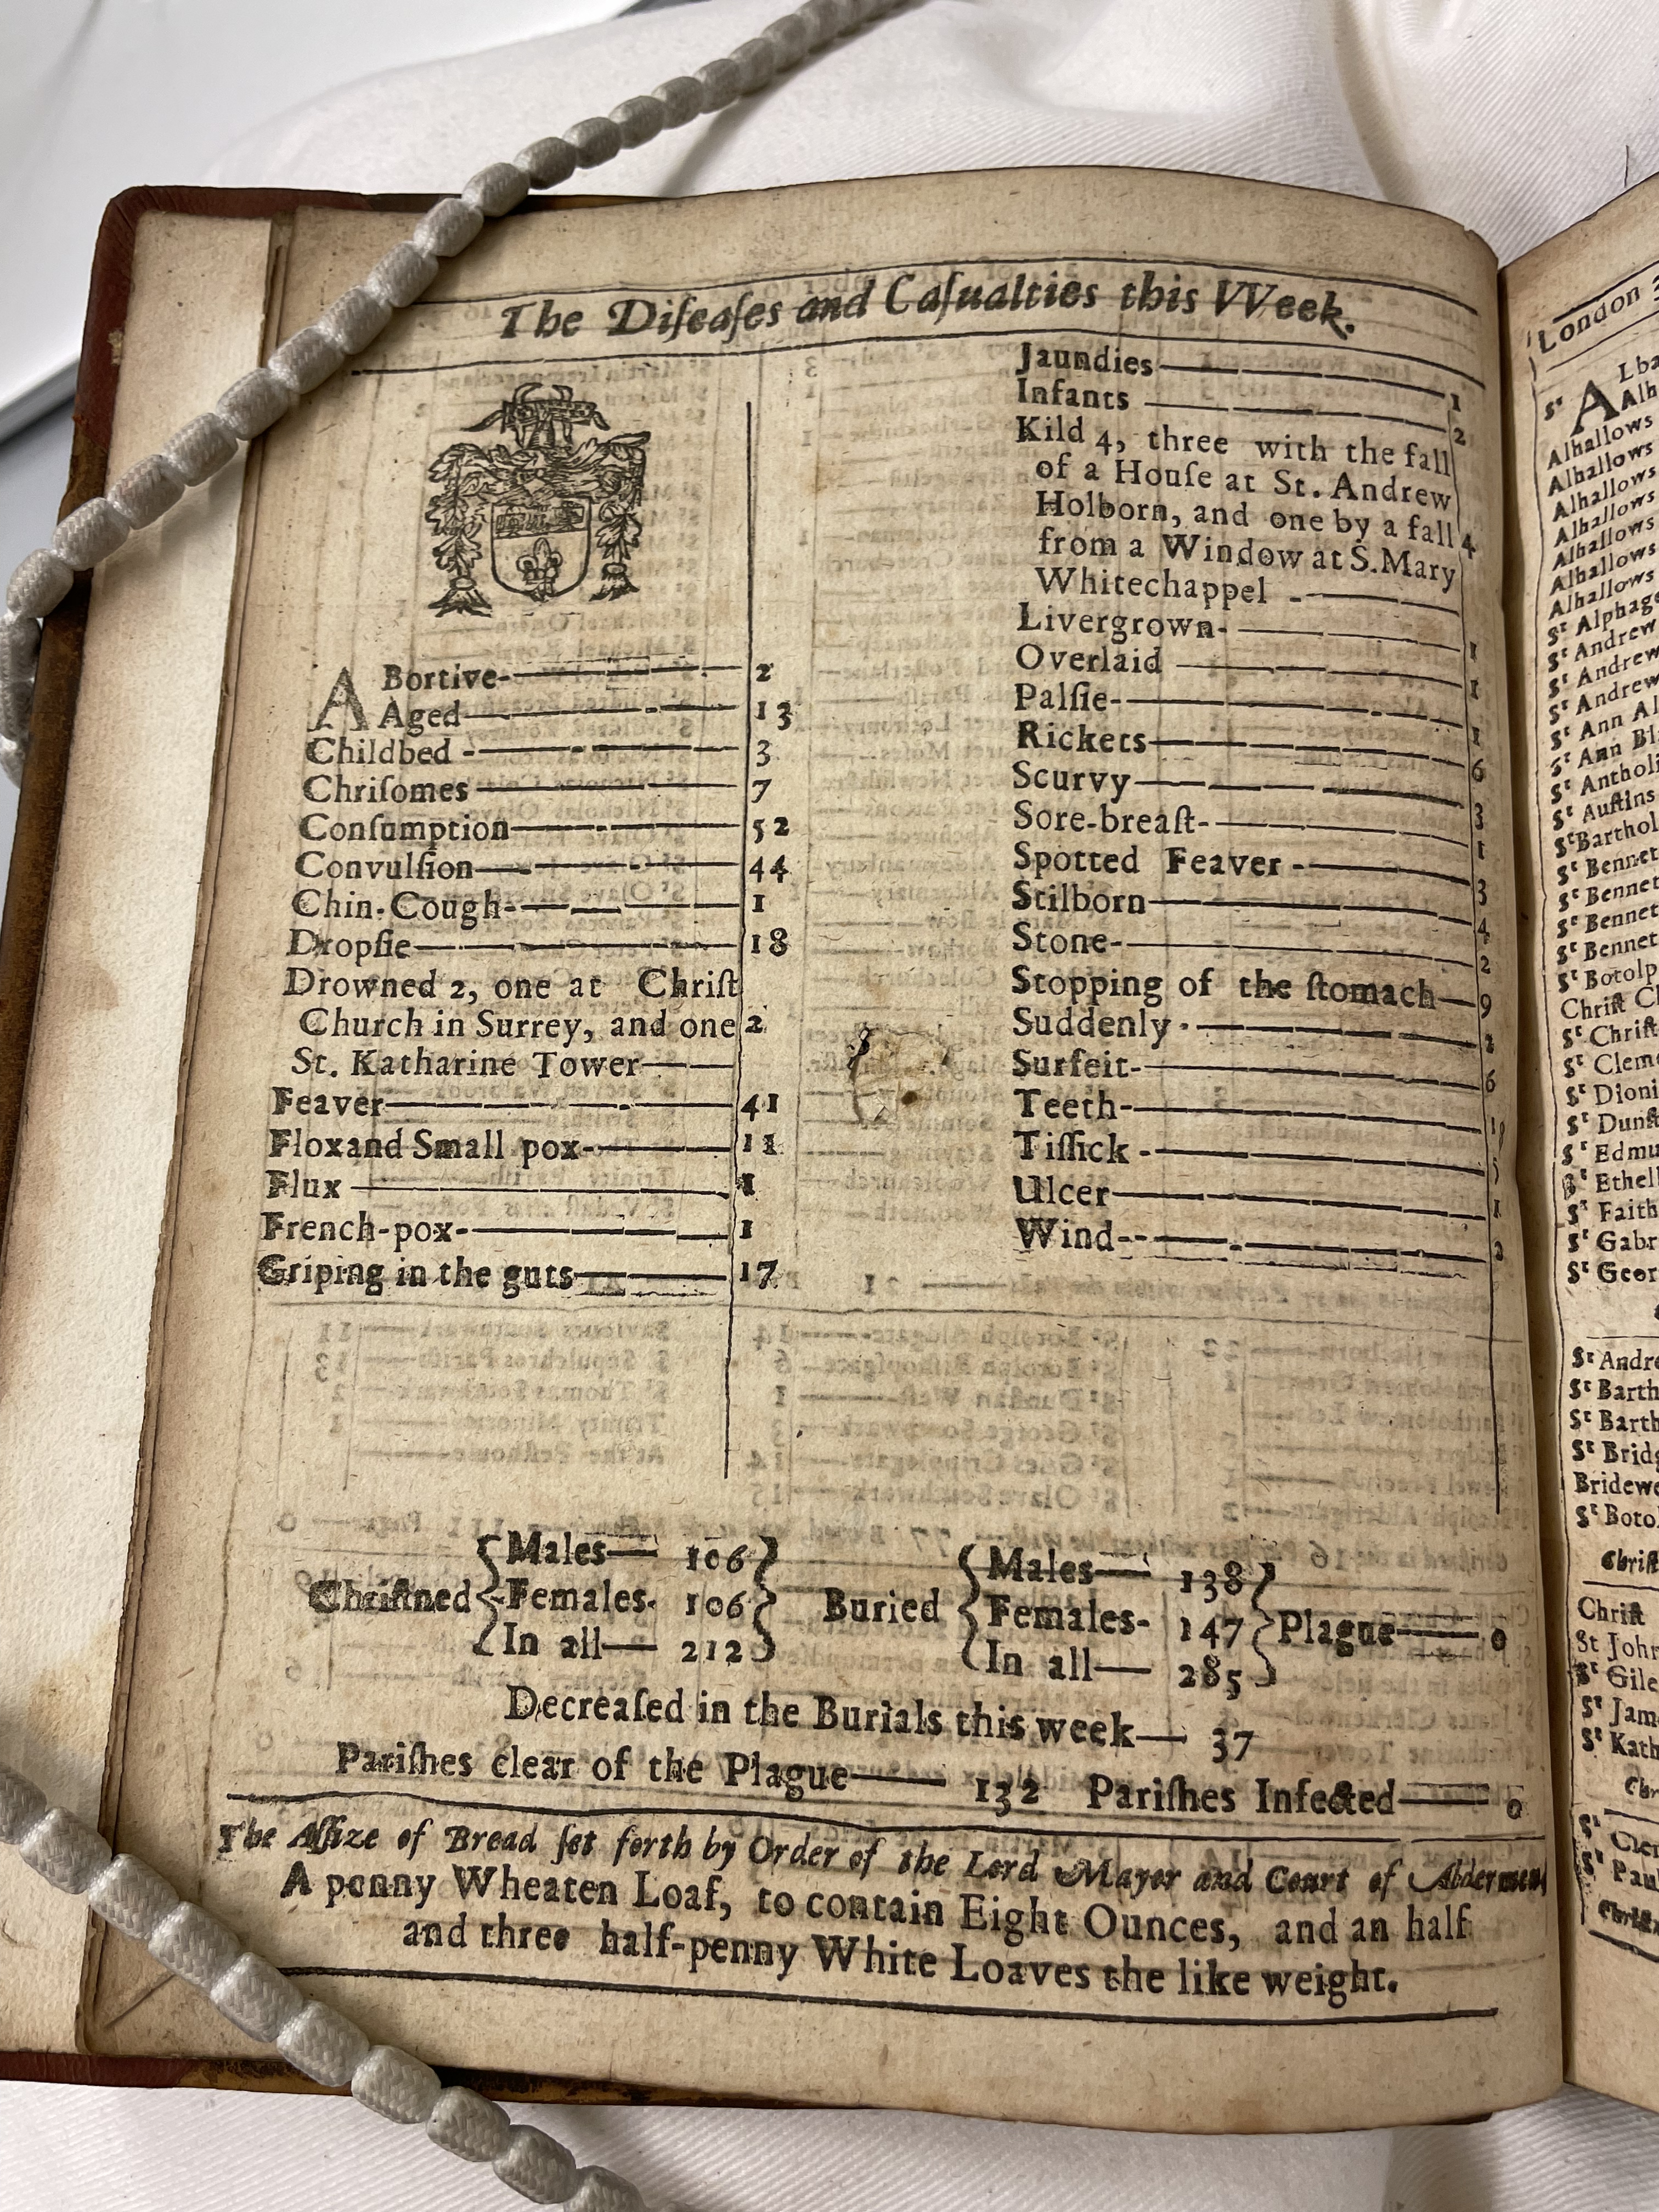 The Diſeaſes and Caſualties this VVeek.
ABortive 2
Aged 13
Childbed 3
Chriſomes 7
Conſumption 52
Convulſion 44
Chin-Cough 1
Dropſie 18
Drowned 2, one at Chriſt
Church in Surrey, and one 2
St. Katharine Tower
Feaver 41
Flox and Small pox 11
Flux 1
French-pox 1
Griping in the guts 17
Jaundies 1
Infants 2
Kild 4, three with the fall
of a Houſe at St. Andrew
Holborn, and one by a fall 4
from a Window at S. Mary
Whitechappel
Livergrown 1
Overlaid 1
Palſie 1
Rickets 6
Scurvy 3
Sore-breaſt 1
Spotted Feaver 3
Stilborn 4
Stone 2
Stopping of the ſtomach 9
Suddenly
Surfeit 6
Teeth
Tiſſick 5
Ulcer 1
Wind
Chriſtned
Males 106
Females 106
In all 212
Buried
Males 138
Females 147
In all 285
Plague 0
Decreaſed in the Burials this week 37
Pariſhes clear of the Plague 132 Pariſhes Infected 0
The Aſſize of Bread ſet forth by Order of the Lord Mayor and Court of Aldermen,
A penny Wheaten Loaf, to contain Eight Ounces, and an half
and three half-penny White Loaves the like weight.
London
Alhallows
Alhallows
Alhallows
Alhallows
Alhallows
Alhallows
Sᵗ Alphage
Sᵗ Andrew
Sᵗ Andrew
Sᵗ Andrew
Sᵗ Ann Al
Sᵗ Ann Bl
Sᵗ Antholi
Sᵗ Auſtins
Sᵗ Barthol
Sᵗ Bennet
Sᵗ Bennet
Sᵗ Bennet
Sᵗ Bennet
Sᵗ Botolp
Chriſt Ch
Sᵗ Chriſt
Sᵗ Cleme
Sᵗ Dioni
Sᵗ Dunſt
Sᵗ Edmu
Sᵗ Ethel
Sᵗ Faith
Sᵗ Gabr
Sᵗ Geor
Sᵗ Andre
Sᵗ Barth
Sᵗ Barth
Sᵗ Bridg
Bridewe
Sᵗ Boto
Chriſt
Chriſt
St John
Sᵗ Gile
Sᵗ Jam
Sᵗ Kath
Chr
Sᵗ Cler
Sᵗ Pau